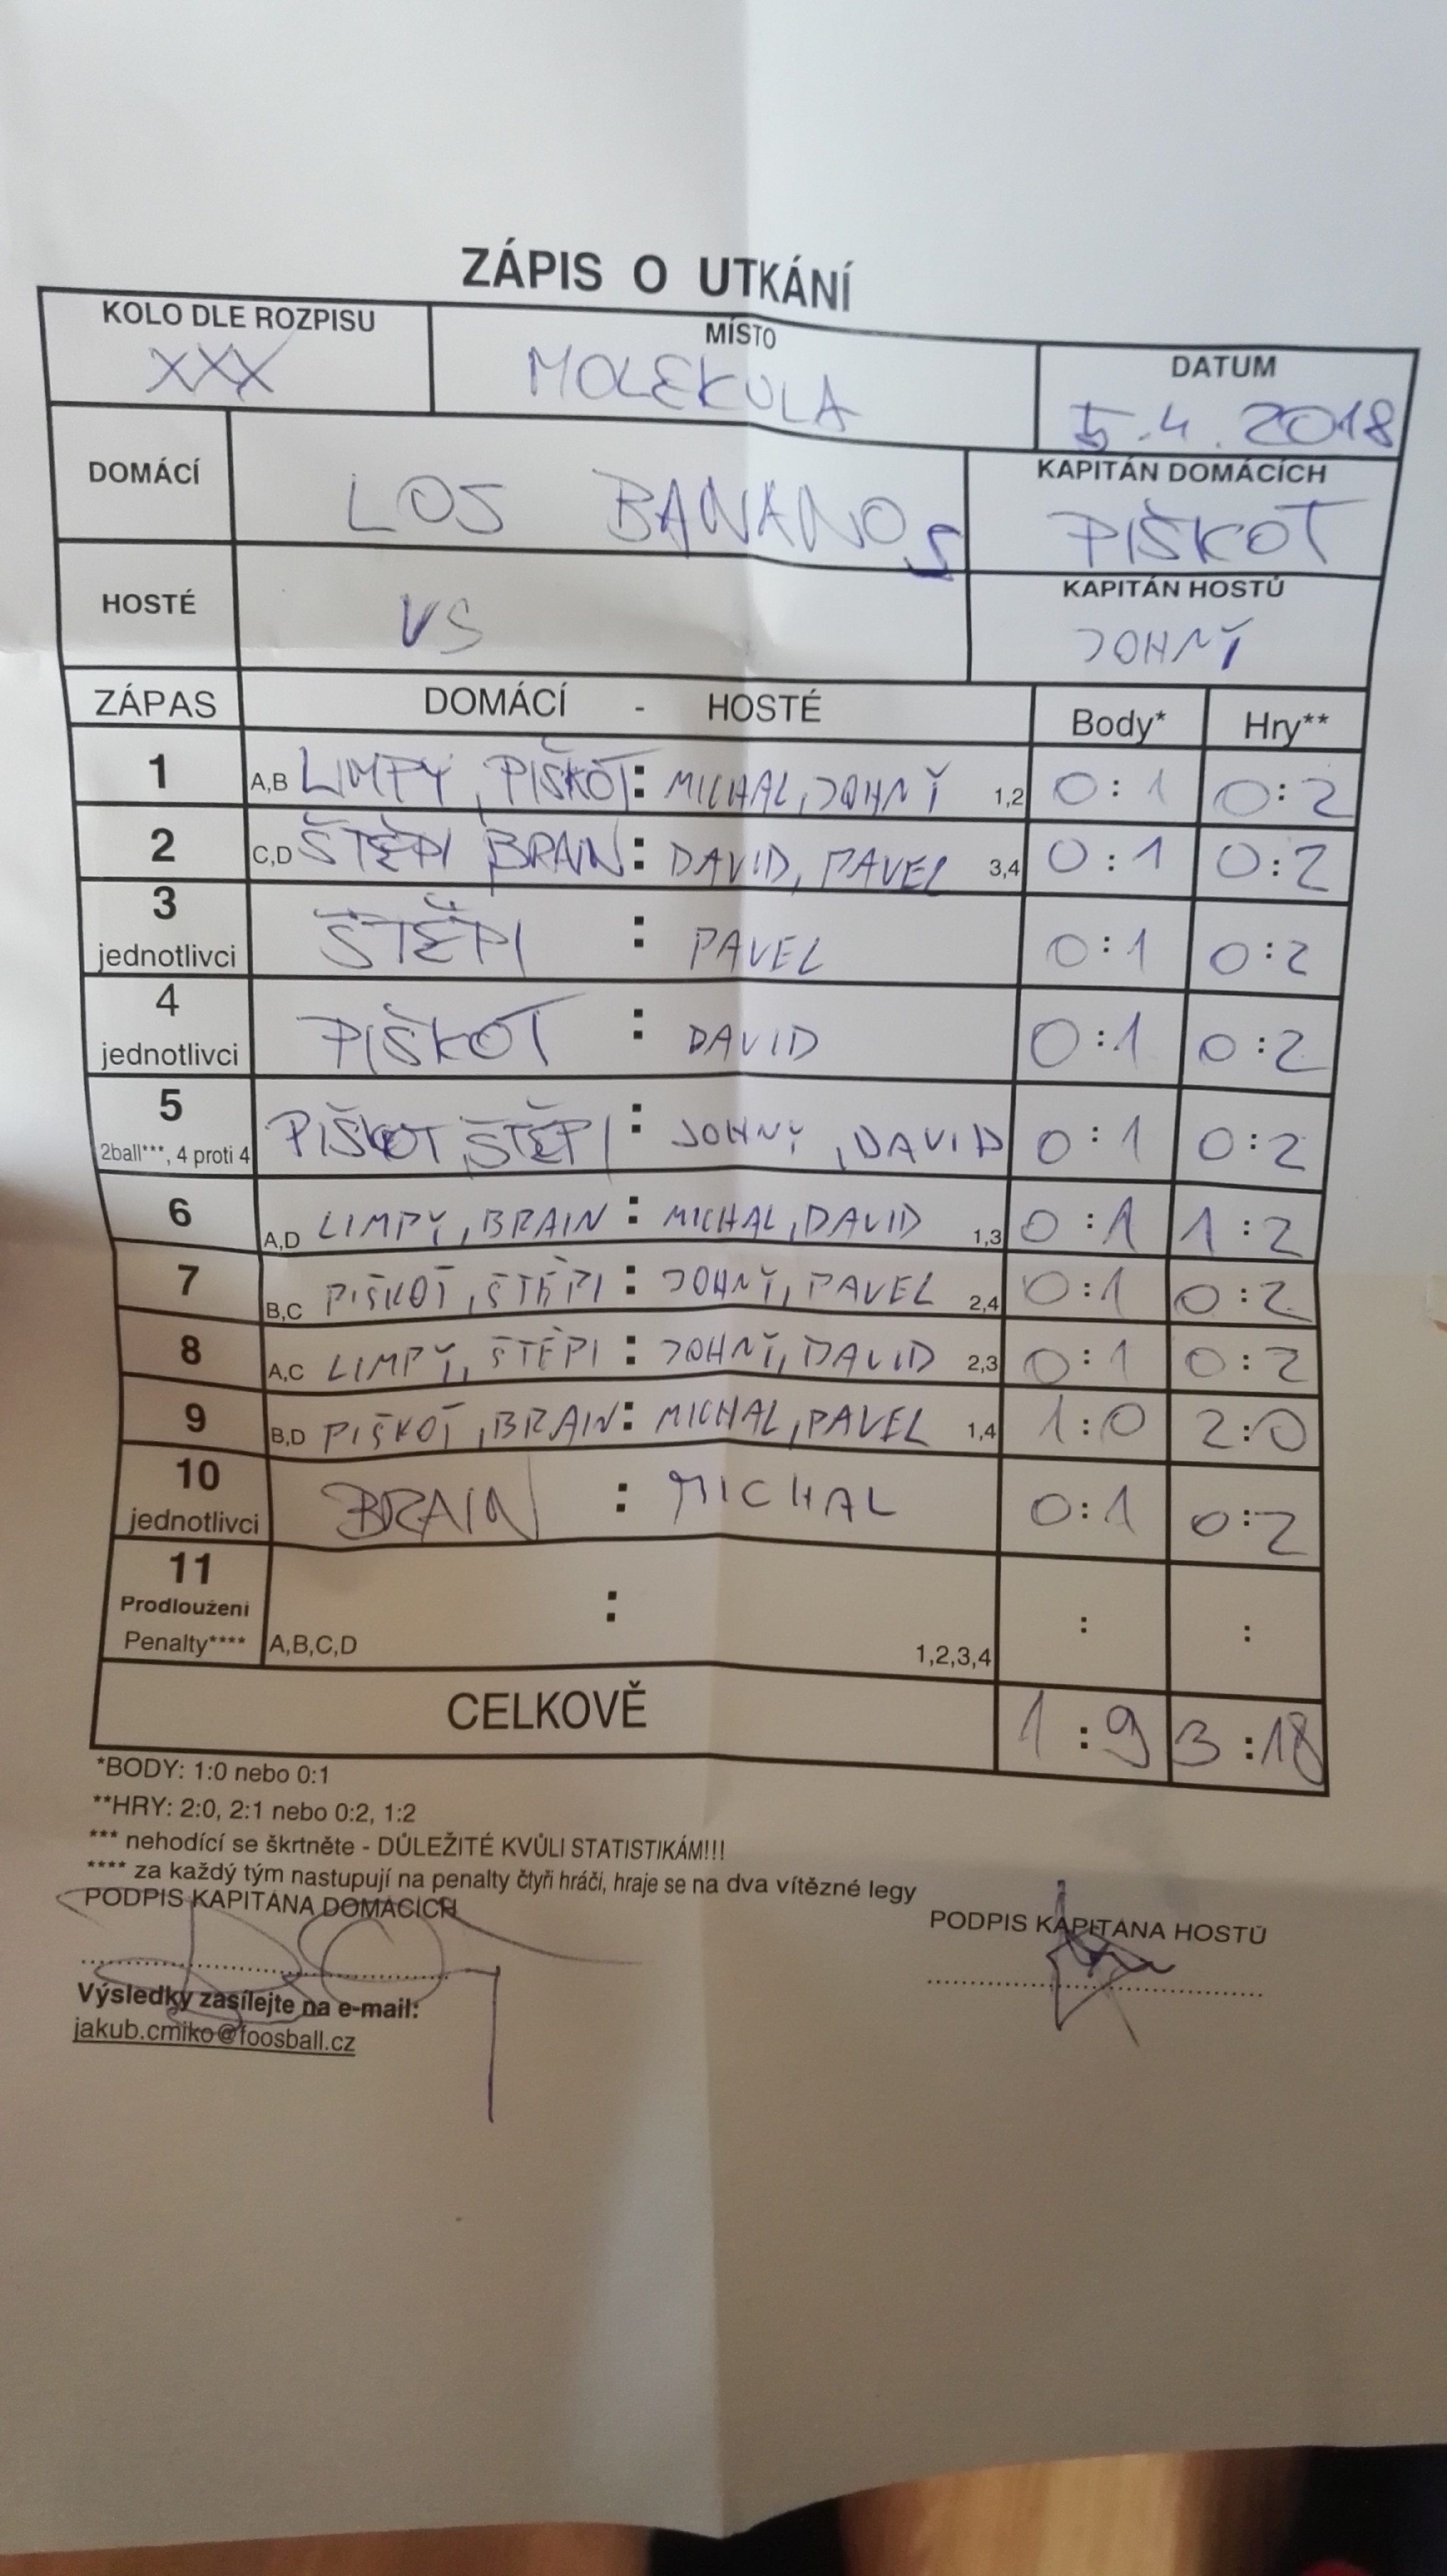 ZÁPIS O UTKÁNÍ
KOLO DLE ROZPISU MÍSTO DATUM
XXX MOLEKULA 5.4.2018
DOMÁCÍ LOS BANANOS KAPITÁN DOMÁCÍCH
PIŠKOT
HOSTÉ VS KAPITÁN HOSTŮ
JOHNY
ZÁPAS DOMÁCÍ - HOSTÉ Body* Hry**
1 A,B LIMPY, PIŠKOT : MICHAL, JOHNY 1,2 0:1 0:2
2 C,D ŠTĚPI, BRAIN : DAVID, PAVEL 3,4 0:1 0:2
3 jednotlivci ŠTĚPI : PAVEL 0:1 0:2
4 jednotlivci PIŠKOT : DAVID 0:1 0:2
5 2ball***, 4 proti 4 PIŠKOT, ŠTĚPI : JOHNY, DAVID 0:1 0:2
6 A,D LIMPY, BRAIN : MICHAL, DAVID 1,3 0:1 1:2
7 B,C PIŠKOT, ŠTĚPI : JOHNY, PAVEL 2,4 0:1 0:2
8 A,C LIMPY, ŠTĚPI : JOHNY, DAVID 2,3 0:1 0:2
9 B,D PIŠKOT, BRAIN : MICHAL, PAVEL 1,4 1:0 2:0
10 jednotlivci BRAIN : MICHAL 0:1 0:2
11
Prodloužení :
Penalty**** A,B,C,D 1,2,3,4 : :
CELKOVĚ 1:9 3:18
*BODY: 1:0 nebo 0:1
**HRY: 2:0, 2:1 nebo 0:2, 1:2
*** nehodící se škrtněte - DŮLEŽITÉ KVŮLI STATISTIKÁM!!!
**** za každý tým nastupují na penalty čtyři hráči, hraje se na dva vítězné legy
PODPIS KAPITÁNA DOMÁCÍCH PODPIS KAPITÁNA HOSTŮ
Výsledky zasílejte na e-mail:
jakub.cmiko@foosball.cz